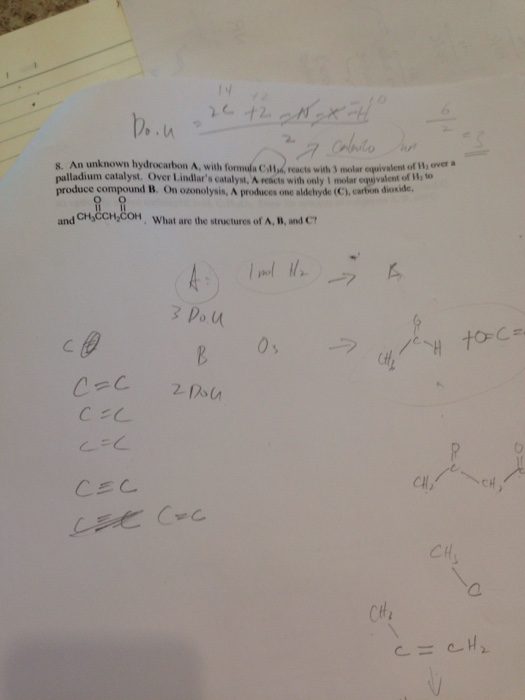 14 12
D.o.u = 2C +2 -N -X -H
2
6
2 = 3
8. An unknown hydrocarbon A, with formula reacts with 3 molar equivalent of H₂ over a
palladium catalyst. Over Lindlar's catalyst, A reacts with only 1 molar equivalent of H₂ to
produce compound B. On ozonolysis, A produces one aldehyde (C), carbon dioxide,
O O
and CH₃CCH₂COH . What are the structures of A, B, and C?
A: 1 mol H₂ → B
3 DoU
C
B O₃ → CH₃ C H + O=C=
C=C 2 DoU
C=C
C=C
CH₃ C CH₂
C≡C
C=C
CH₃
C
CH₂
C = CH₂